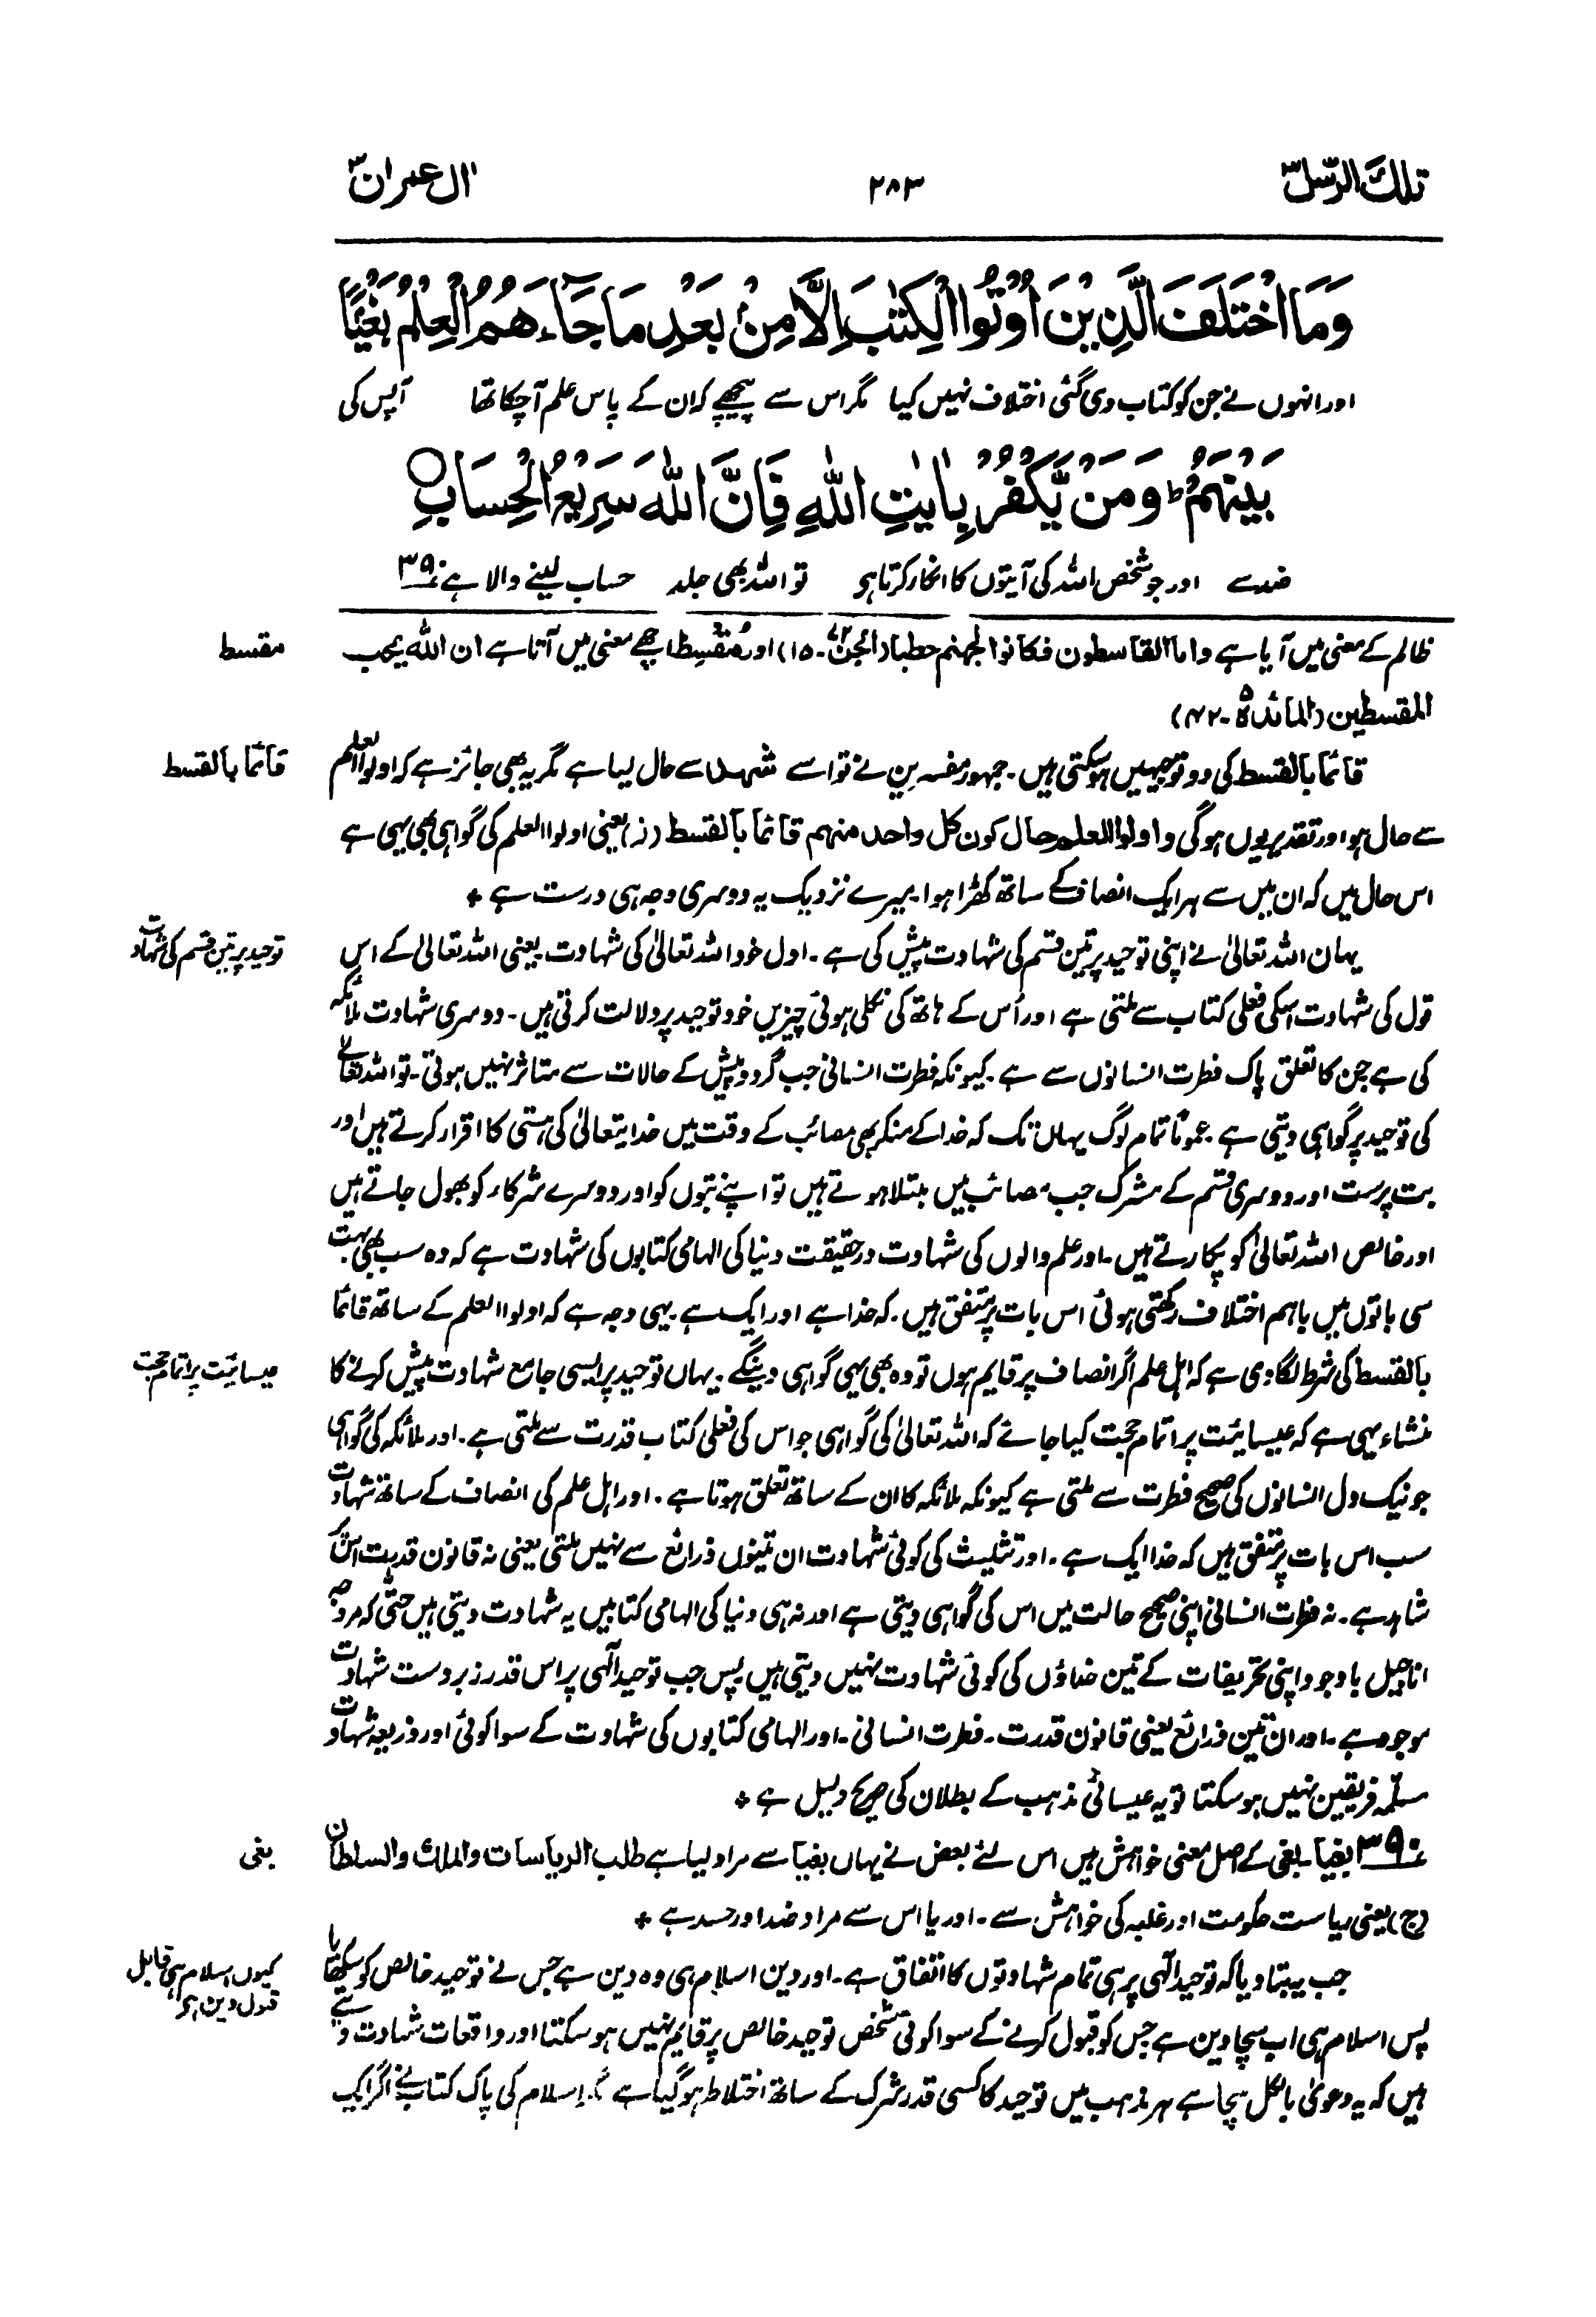 تلك الرسل ۳
۲۸۳
اٰل عمران ۳
وَمَا اخْتَلَفَ الَّذِيْنَ اُوْتُوا الْكِتٰبَ اِلَّا مِنْۢ بَعْدِ مَا جَآءَهُمُ الْعِلْمُ بَغْيًۢا
اور انہوں نے جن کو کتاب دی گئی اختلاف نہیں کیا مگر اس سے پیچھے کہ ان کے پاس علم آچکا تھا آپس کی
بَيْنَهُمْ ؕ وَمَنْ يَّكْفُرْ بِاٰيٰتِ اللّٰهِ فَاِنَّ اللّٰهَ سَرِيْعُ الْحِسَابِ
ضد سے اور جو شخص اللہ کی آیتوں کا انکار کرتا ہو تو اللہ بھی جلد حساب لینے والا ہے ۳۹۰
ظالم کے معنی میں آیا ہے واما القاسطون فكانوا لجهنم حطبا (الجن ۷۲-۱۵) اور مُقْسِط اچھے معنی میں آتا ہے ان الله يحب
مقسط
المقسطين (المائدة ۵-۴۲)
قائما بالقسط کی دو توجیہیں ہو سکتی ہیں۔ جمہور مفسرین نے تو اسے شهد سے حال لیا ہے مگر یہ بھی جائز ہے کہ اولوا العلم
قائما بالقسط
سے حال ہو اور تقدیر یوں ہوگی و اولوا العلم حال كون كل واحد منهم قائما بالقسط (ز) یعنی اولوا العلم کی گواہی بھی یہی ہے
اس حال میں کہ ان میں سے ہر ایک انصاف کے ساتھ کھڑا ہوا۔ میرے نزدیک یہ دوسری وجہ ہی درست ہے +
یہاں اللہ تعالیٰ نے اپنی توحید پر تین قسم کی شہادت پیش کی ہے۔ اول خود اللہ تعالیٰ کی شہادت یعنی اللہ تعالیٰ کے اس
توحید پر تین قسم کی شہادت
قول کی شہادت اسکی فعلی کتاب سے ملتی ہے اور اُس کے ہاتھ کی نکلی ہوئی چیزیں خود توحید پر دلالت کرتی ہیں۔ دوسری شہادت ملائکہ
کی ہے جن کا تعلق پاک فطرت انسانوں سے ہے۔ کیونکہ فطرت انسانی جب گرد و پیش کے حالات سے متاثر نہیں ہوتی۔ تو اللہ تعالےٰ
کی توحید پر گواہی دیتی ہے۔ عموماً تمام لوگ یہاں تک کہ خدا کے منکر بھی مصائب کے وقت میں خدا یتعالیٰ کی ہستی کا اقرار کرتے ہیں اور
بت پرست اور دوسری قسم کے مشرک جب مصائب میں مبتلا ہوتے ہیں تو اپنے بتوں کو اور دوسرے شرکاء کو بھول جاتے ہیں
اور خالص اللہ تعالیٰ کو پکارتے ہیں۔ اور علم والوں کی شہادت درحقیقت دنیا کی الہامی کتابوں کی شہادت ہے کہ وہ سب بھی بہت
سی باتوں میں باہم اختلاف رکھتی ہوئی اس بات پر متفق ہیں۔ کہ خدا ہے اور ایک ہے۔ یہی وجہ ہے کہ اولوا العلم کے ساتھ قائما
بالقسط کی شرط لگا دی ہے کہ اہل علم اگر انصاف پر قایم ہوں تو وہ بھی یہی گواہی دینگے۔ یہاں توحید پر ایسی جامع شہادت پیش کرنے کا
عیسائیت پر اتمام حجت
منشاء یہی ہے کہ عیسائیت پر اتمام حجت کیا جائے کہ اللہ تعالیٰ کی گواہی جو اس کی فعلی کتاب قدرت سے ملتی ہے۔ اور ملائکہ کی گواہی
جو نیک دل انسانوں کی صحیح فطرت سے ملتی ہے کیونکہ ملائکہ کا ان کے ساتھ تعلق ہوتا ہے۔ اور اہل علم کی انصاف کے ساتھ شہادت
سب اس بات پر متفق ہیں کہ خدا ایک ہے۔ اور تثلیث کی کوئی شہادت ان تینوں ذرائع سے نہیں ملتی یعنی نہ قانون قدرت اس کا
شاہد ہے۔ نہ فطرت انسانی اپنی صحیح حالت میں اس کی گواہی دیتی ہے اور نہ ہی دنیا کی الہامی کتابیں یہ شہادت دیتی ہیں حتیٰ کہ مروجہ
اناجیل باوجود اپنی تحریفات کے تین خداؤں کی کوئی شہادت نہیں دیتی ہیں پس جب توحید الٰہی پر اس قدر زبردست شہادت
موجود ہے۔ اور ان تین ذرائع یعنی قانون قدرت۔ فطرت انسانی۔ اور الہامی کتابوں کی شہادت کے سوا کوئی اور ذریعہ شہادت
مسلّمہ فریقین نہیں ہو سکتا تو یہ عیسائی مذہب کے بطلان کی صریح دلیل ہے +
۳۹۰ بغیا۔ بغی کے اصل معنی خواہش ہیں اس لئے بعض نے یہاں بغیا سے مراد لیا ہے طلب الرياسات والملك والسلطان
بغی
(ج) یعنی ریاست حکومت اور غلبہ کی خواہش سے۔ اور یا اس سے مراد ضد اور حسد ہے +
جب یہ بتا دیا کہ توحید الٰہی پر ہی تمام شہادتوں کا اتفاق ہے۔ اور دین اسلام ہی وہ دین ہے جس نے توحید خالص کو سکھایا
کیوں اسلام ہی قابل
قبول دین ہو
پس اسلام ہی اب سچا دین ہے جس کو قبول کرنے کے سوا کوئی شخص توحید خالص پر قایم نہیں ہو سکتا اور واقعات شہادت دیتے
ہیں کہ یہ دعویٰ بالکل سچا ہے ہر مذہب میں توحید کا کسی قدر شرک کے ساتھ اختلاط ہو گیا ہے۔ اسلام کی پاک کتاب نے اگر ایک